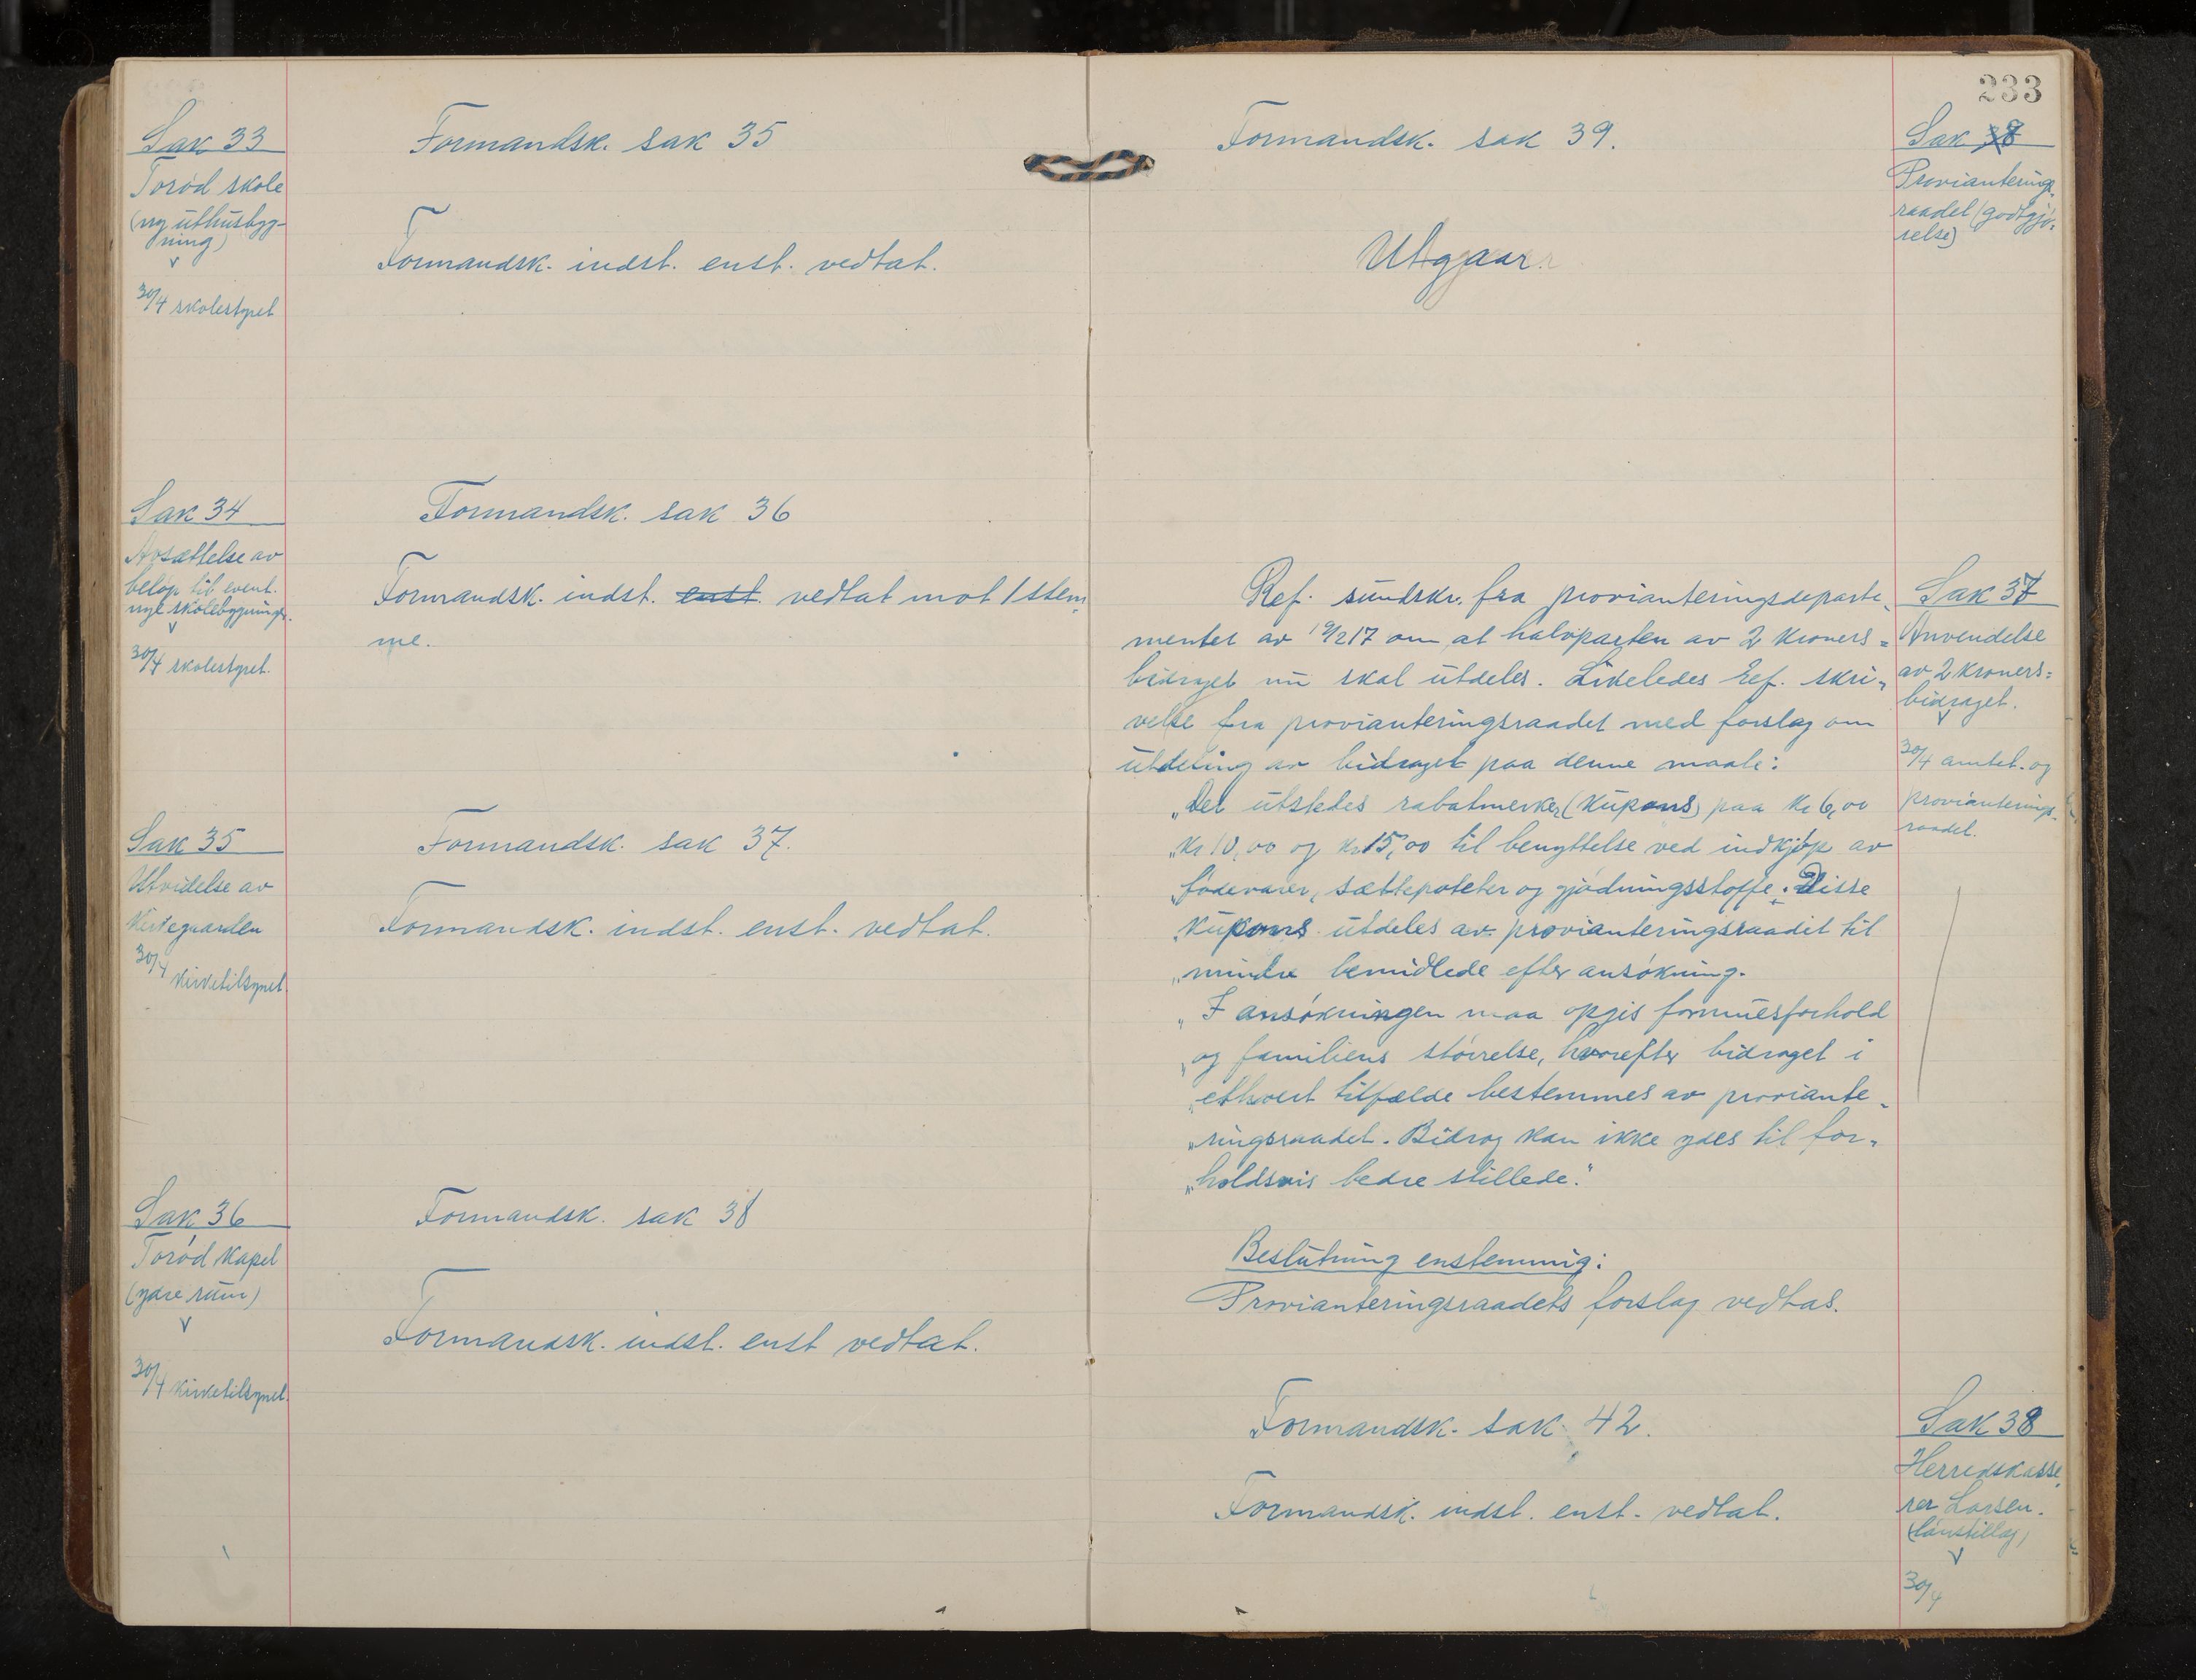 Sak 33
Toröd skole
(ny uthusbyg-
ning)
30/4 skolestyret
Formandsk. sak 35
Formandsk. indst. enst. vedtat.
Sak 34
Avsættelse av
beløp til event.
nye skolebygninger.
30/4 skolestyret.
Formandsk. sak 36
Formandsk. indst. enst. vedtat mot 1 stem,
me.
Sak 35
Utvidelse av
kirkegaarden
30/4 kirketilsynet.
Formandsk. sak 37.
Formandsk. indst. enst. vedtat.
Sak 36
Toröd kapel
(ydre rum)
30/4 kirketilsynet.
Formandsk. sak 38
Formandsk. indst. enst vedtat.
233
Formandsk. sak 39.
Utgaar.
Sak 38
Provianterings-
raadet (godtgjö-
relse)
Ref. rundskr. fra provianteringsdeparte-
mentet av 19/2 17 om at halvparten av 2 kroners=
bidraget nu skal utdeles. Likeledes ref. skri-
velse fra provianteringsraadet med forslag om
utdeling av bidraget paa denne maate:
"Det utstedes rabatmerker (kupons) paa kr 6,00
"kr 10,00 og kr 15,00 til benyttelse ved indkjöp av
"födevarer, sættepoteter og gjödningsstoffe. Disse
"kupons utdeles av provianteringsraadet til
"mindre bemidlede efter ansökning.
"I ansökningen maa opgis formuesforhold
"og familiens störrelse, hvorefter bidraget i
"ethvert tilfælde bestemmes av proviante-
"ringsraadet. Bidrag kan ikke ydes til for-
"holdsvis bedre stillede."
Beslutning enstemmig:
Provianteringsraadets forslag vedtas.
Sak 37
Anvendelse
av 2 kroners=
bidraget.
30/4 amtet. og
provianterings-
raadet.
Formandsk. sak 42.
Formandsk. indst. enst. vedtat.
Sak 38
Herredskasse,
rer Larsen.
(lönstillæg)
30/4